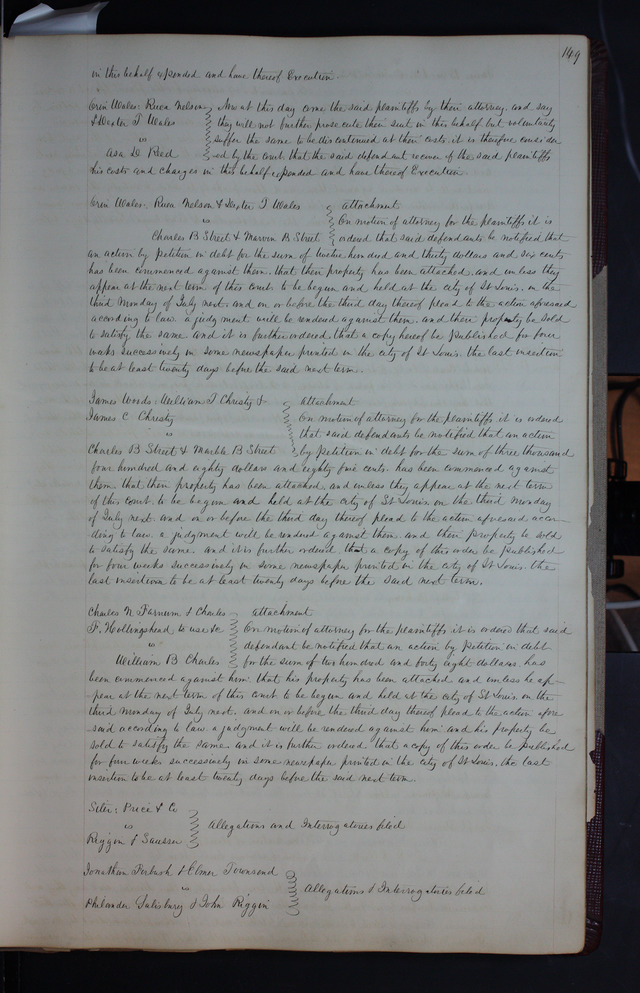 149
in this behalf expended and have thereof Execution.
Orin Wales. Ruea Nelson Now at this day come the said plaintiffs by their attorney. and say
& Dexter T Wales they will not further prosecute their suit in this behalf but voluntarily
vs suffer the same to be discontinued at their costs. it is therefore consider
Asa D Reed -ed by the court that the said dependant recover of the said plaintiffs
his costs and charges in this behalf expended and have thereof Execution
Orin Wales. Ruea Nelson & Dexter T Wales attachment
vs On motion of attorney for the plaintiffs it is
Charles B Street & Marvin B Street ordered that said defendants be notified that
an action by petition in debt for the sum of twelve hundred and thirty dollars and six cents
has been commenced against them. that their property has been attached. and unless they
appear at the next term of this court to be begun and held at the city of St Louis. on the
third Monday of July next. and on or before the third day thereof plead to the action aforesaid
according to law. a judgment will be rendered against them. and their property be sold
to satisfy the same and it is further ordered. that a copy hereof be published for four
weeks successively in some newspaper printed in the city of St Louis. the last insertion
to be at least twenty days before the said next term.
James Woods. William T Christy & attachment
James C Christy On motion of attorney for the plaintiffs it is ordered
vs that said defendants be notified that an action
Charles B Street & Marble B Street by petition in debt for the sum of three thousand
four hundred and eighty dollars and eighty five cents. has been commenced against
them that their property has been attached. and unless they appear at the next term
of this court. to be begun and held at the city of St Louis on the third Monday
of July next. and on or before the third day thereof plead to the action aforesaid accor-
ding to law. a judgment will be rendered against them. and their property be sold
to satisfy the same. and it is further ordered. that a copy of this order be published
for four weeks successively in some newspaper printed in the city of St Louis. the
last insertion to be at least twenty days before the said next term.
Charles N Farnum & Charles attachment
F. Hollingshead to use &c On motion of attorney for the plaintiffs it is ordered that said
vs defendant be notified that an action by petition in debt
William B Charles for the sum of two hundred and forty eight dollars. has
been commenced against him that his property has been attached and unless he ap-
pear at the next term of this court to be begun and held at the city of St Louis on the
third Monday of July next. and on or before the third day thereof plead to the action afore
said according to law a judgment will be rendered against him and his property be
sold to satisfy the same. and it is further ordered that a copy of this order be published
for four weeks successively in some newspaper printed in the city of St Louis. the last
insertion to be at least twenty days before the said next term.
Siter. Price & Co
vs Allegations and Interrogatories filed
Riggin &
Jonathan Furbush & Elmer Townsend
vs Allegations & Interrogatories filed
Philander Salisbury & John Riggin